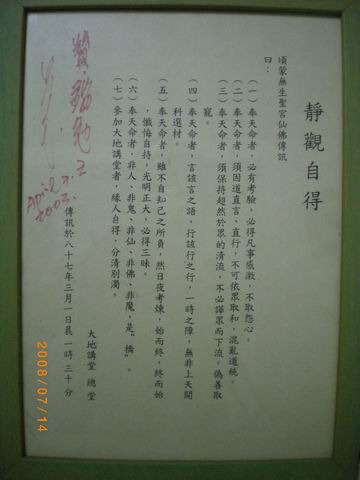 靜觀自得
頃蒙無生聖宮仙佛傳訊
曰：
（一）奉天命者，必有考驗，必得凡事感激，不取怨心。
（二）奉天命者，須因道直言、直行，不可依眾取和，混亂道統。
（三）奉天命者，須保持超然於眾的清流，不必譁眾而下流，偽善取
寵。
（四）奉天命者，言該言之語，行該行之行，一時之障，無非上天開
科選材。
（五）奉天命者，雖不自知己之所負，然日夜考煉，始而終，終而始
，懺悔自持，光明正大，必得三昧。
（六）奉天命者，非人、非鬼、非仙、非佛、非魔，是"橋"。
（七）參加大地講堂者，緣人自得，分清別濁。
大地講堂 總堂
傳訊於八十七年三月一日晨一時三十分
April
2003.
2008/07/14